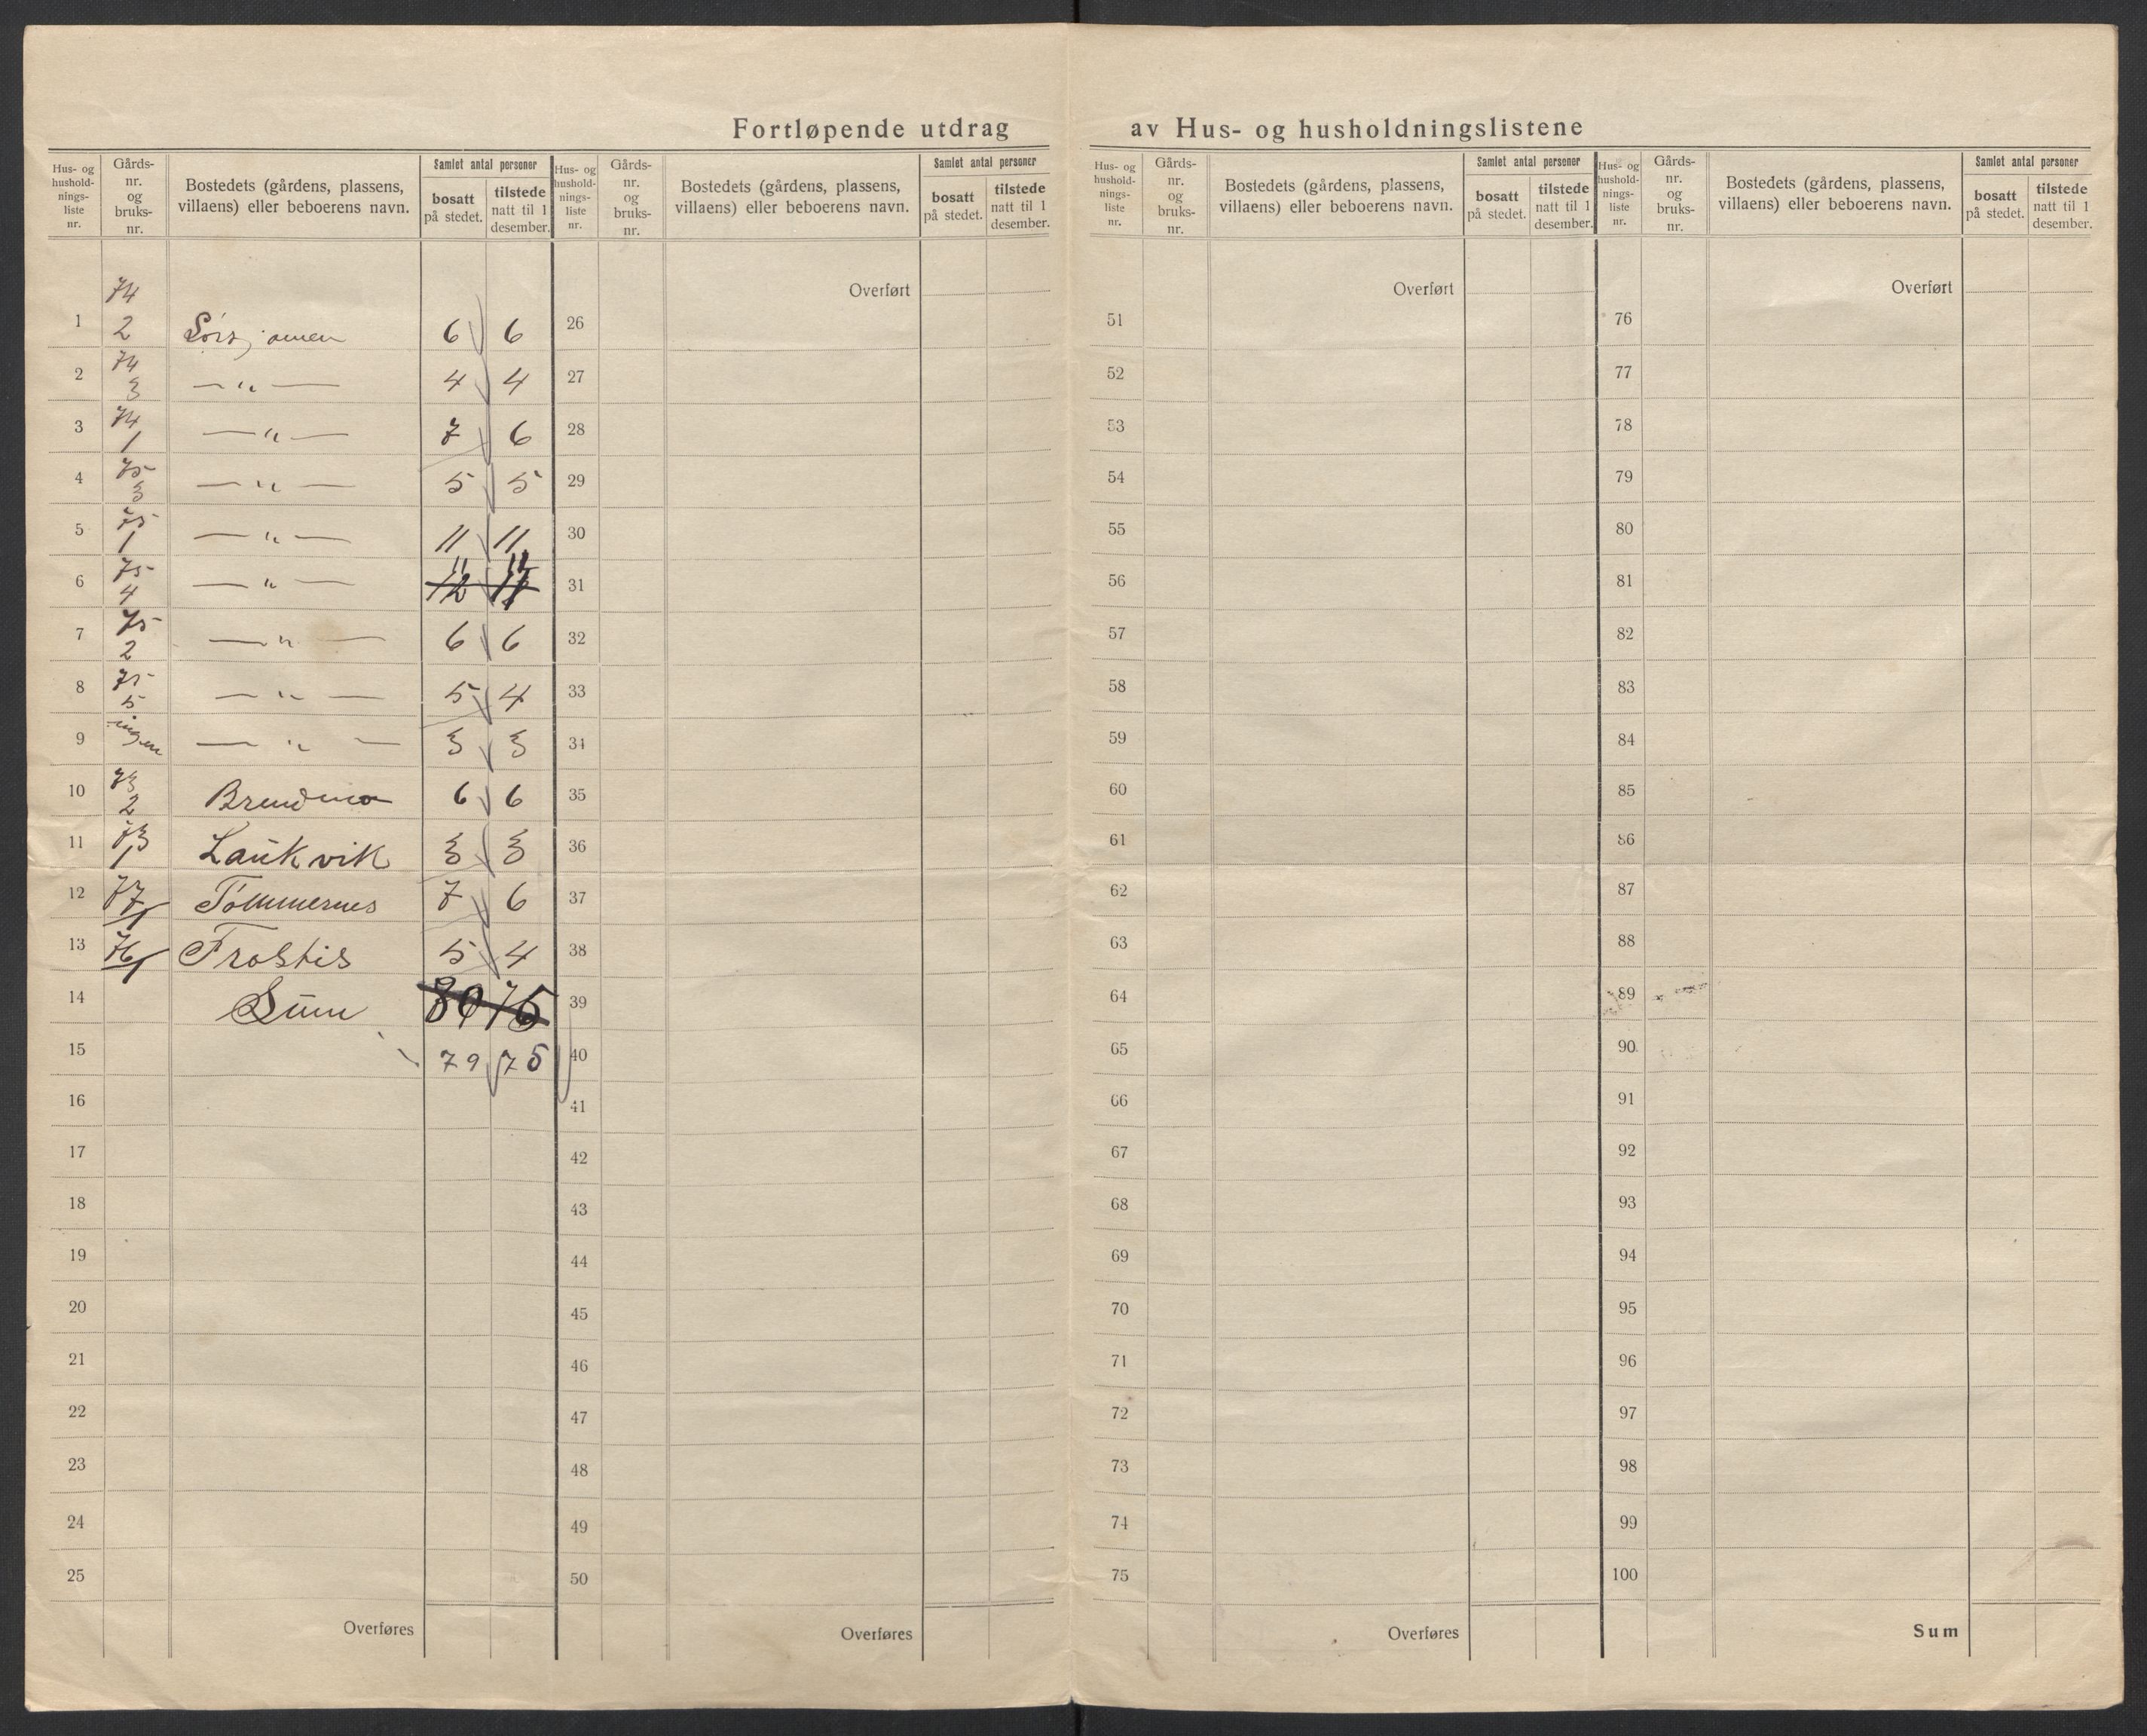 Fortløpende utdrag av Hus- og husholdningslistene
Hus- og hushold-nings-liste nr. Gårds-nr. og bruks-nr. Bostedets (gårdens, plassens, villaens) eller beboerens navn. Samlet antal personer bosatt på stedet. tilstede natt til 1 desember.
1 74 2 6 6
2 74 3 — " — 4 4
3 74 1 — " — 7 6
4 75 3 — " — 5 5
5 75 1 — " — 11 11
6 75 4 — " — 11 11
7 75 2 — " — 6 6
8 75 5 — " — 5 4
9 ingen — " — 3 3
10 73 2 Brendmo 6 6
11 73 1 Laukvik 3 3
12 77/1 Tømmernes 7 6
13 76/1 Frostis 5 4
14 Sum 80 76
15 79 75
16
17
18
19
20
21
22
23
24
25
Overføres
Hus- og hushold-nings-liste nr. Gårds-nr. og bruks-nr. Bostedets (gårdens, plassens, villaens) eller beboerens navn. Samlet antal personer bosatt på stedet. tilstede natt til 1 desember.
Overført
26
27
28
29
30
31
32
33
34
35
36
37
38
39
40
41
42
43
44
45
46
47
48
49
50
Overføres
Hus- og hushold-nings-liste nr. Gårds-nr. og bruks-nr. Bostedets (gårdens, plassens, villaens) eller beboerens navn. Samlet antal personer bosatt på stedet. tilstede natt til 1 desember.
Overført
51
52
53
54
55
56
57
58
59
60
61
62
63
64
65
66
67
68
69
70
71
72
73
74
75
Overføres
Hus- og hushold-nings-liste nr. Gårds-nr. og bruks-nr. Bostedets (gårdens, plassens, villaens) eller beboerens navn. Samlet antal personer bosatt på stedet. tilstede natt til 1 desember.
Overført
76
77
78
79
80
81
82
83
84
85
86
87
88
89
90
91
92
93
94
95
96
97
98
99
100
Sum